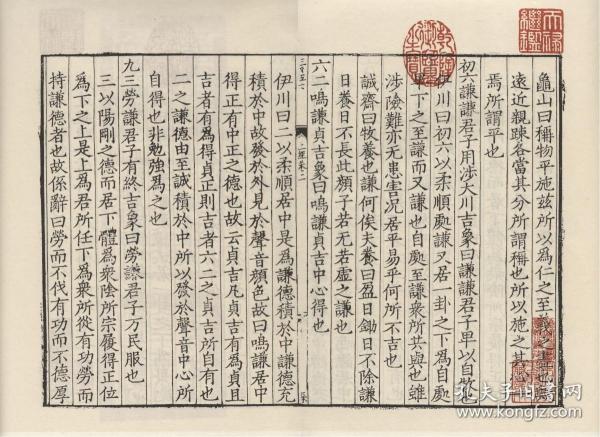 龜山曰稱物平施茲所以為仁之至義之盡也
遠近親疎各當其分所謂稱也所以施之其心
焉所謂平也
初六謙謙君子用涉大川吉象曰謙謙君子卑以自牧也
伊川曰初六以柔順處謙又居一卦之下為自處
卑下之至謙而又謙也自處至謙衆所共與也雖
涉險難亦无患害况居平易乎何所不吉也
誠齋曰牧養也謙何俟夫養曰盈日鋤日不除謙
日養日不長此顏子若无若虛之謙也
六二鳴謙貞吉象曰鳴謙貞吉中心得也
伊川曰二以柔順居中是為謙德積於中謙德充
積於中故發於外見於聲音顏色故曰鳴謙居中
得正有中正之德也故云貞吉凡貞吉有為貞且
吉者有為得貞正則吉者六二之貞吉所自有也
二之謙德由至誠積於中所以發於聲音中心所
自得也非勉強為之也
九三勞謙君子有終吉象曰勞謙君子万民服也
三以陽剛之德而居下體為衆陰所宗履得正位
為下之上是上為君所任下為衆所從有功勞而
持謙德者也故係辭曰勞而不伐有功而不德厚
孔夫子旧书网
www.kongfz.com